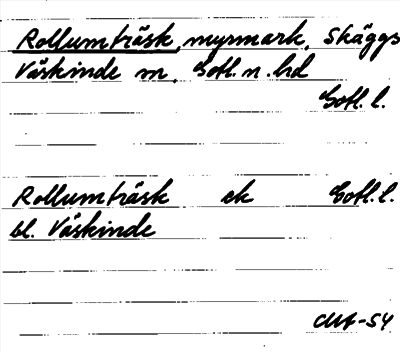 Rollumträsk, myrmark, Skäggs
Väskinde m, Gotl. n. hd
Gotl. l.
Rollumträsk ek Gotl. l.
bl. Väskinde